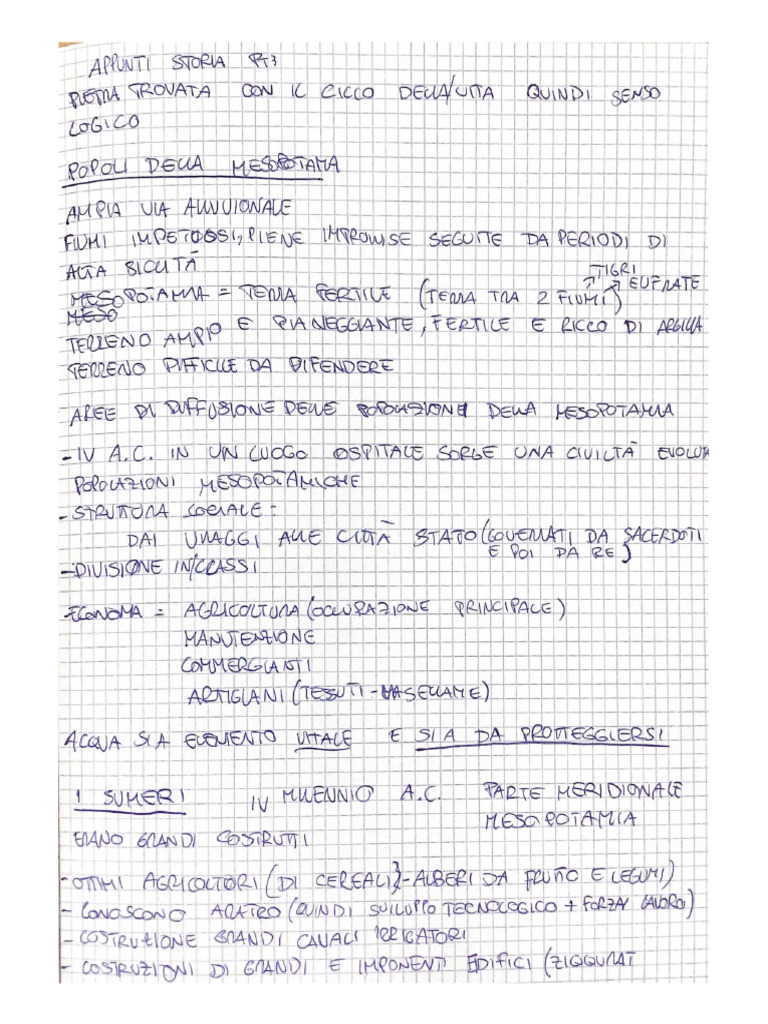 APPUNTI STORIA PT3
PIETRA TROVATA CON IL CICCO DELLA/VITA QUINDI SENSO
LOGICO
POPOLI DELLA MESOPOTAMA
AMPIA VIA ALLUVIONALE
FIUMI IMPETUOSI, PIENE IMPROVVISE SEGUITE DA PERIODI DI
ALTA SICCITÀ
MESOPOTAMIA = TERRA FERTILE (TERRA TRA 2 FIUMI) TIGRI EUFRATE
MESO
TERRENO AMPIO E PIANEGGIANTE, FERTILE E RICCO DI ARGILLA
TERRENO DIFFICILE DA DIFENDERE
AREE DI DIFFUSIONE DELLE POPOLAZIONI DELLA MESOPOTAMIA
- IV A.C. IN UN LUOGO OSPITALE SORGE UNA CIVILTÀ EVOLUTA
POPOLAZIONI MESOPOTAMICHE
- STRUTTURA SOCIALE:
DAI VILLAGGI ALLE CITTÀ STATO (GOVERNATI DA SACERDOTI
E POI DA RE)
- DIVISIONE IN/CLASSI
ECONOMIA = AGRICOLTURA (OCCUPAZIONE PRINCIPALE)
MANUTENZIONE
COMMERGIANTI
ARTIGIANI (TESSUTI - VASELLAME)
ACQUA SIA ELEMENTO VITALE E SIA DA PROTEGGIERSI
I SUMERI IV MILLENNIO A.C. PARTE MERIDIONALE
MESOPOTAMIA
ERANO GRANDI COSTRUTTI
- OTTIMI AGRICOLTORI (DI CEREALI) - ALBERI DA FRUTTO E LEGUMI)
- CONOSCONO ARATRO (QUINDI SVILUPPO TECNOLOGICO + FORZA LAVORO)
- COSTRUZIONE GRANDI CANALI IRRIGATORI
- COSTRUZIONI DI GRANDI E IMPONENTI EDIFICI (ZIGGURAT